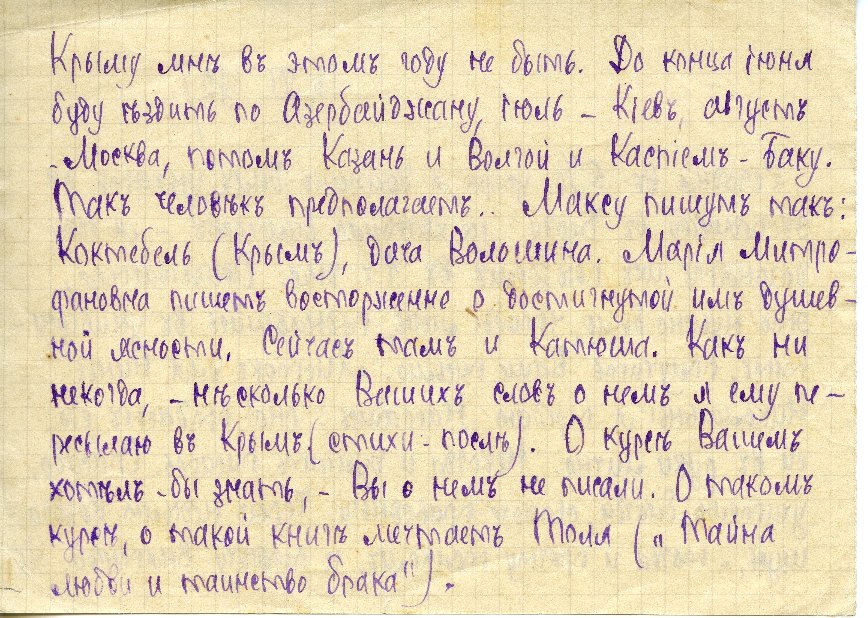 Крыму мнѣ въ этомъ году не быть. До конца iюня
буду ѣздить по Азербайджану, iюль – Кiевъ, августъ
– Москва, потомъ Казань и Волгой и Каспiемъ – Баку.
Такъ человѣкъ предполагаетъ.. Максу пишутъ такъ:
Коктебель (Крымъ), дача Волошина. Марiя Митро-
фановна пишетъ восторженно о достигнутой имъ душев-
ной ясности. Сейчасъ тамъ и Катюша. Какъ ни
некогда, – нѣсколько Вашихъ словъ о немъ я ему пе-
ресылаю въ Крымъ (стихи – послѣ). О курсѣ Вашемъ
хотѣлъ-бы знать, – Вы о немъ не писали. О такомъ
курсѣ, о такой книгѣ мечтаетъ Толя („Тайна
любви и таинство брака").